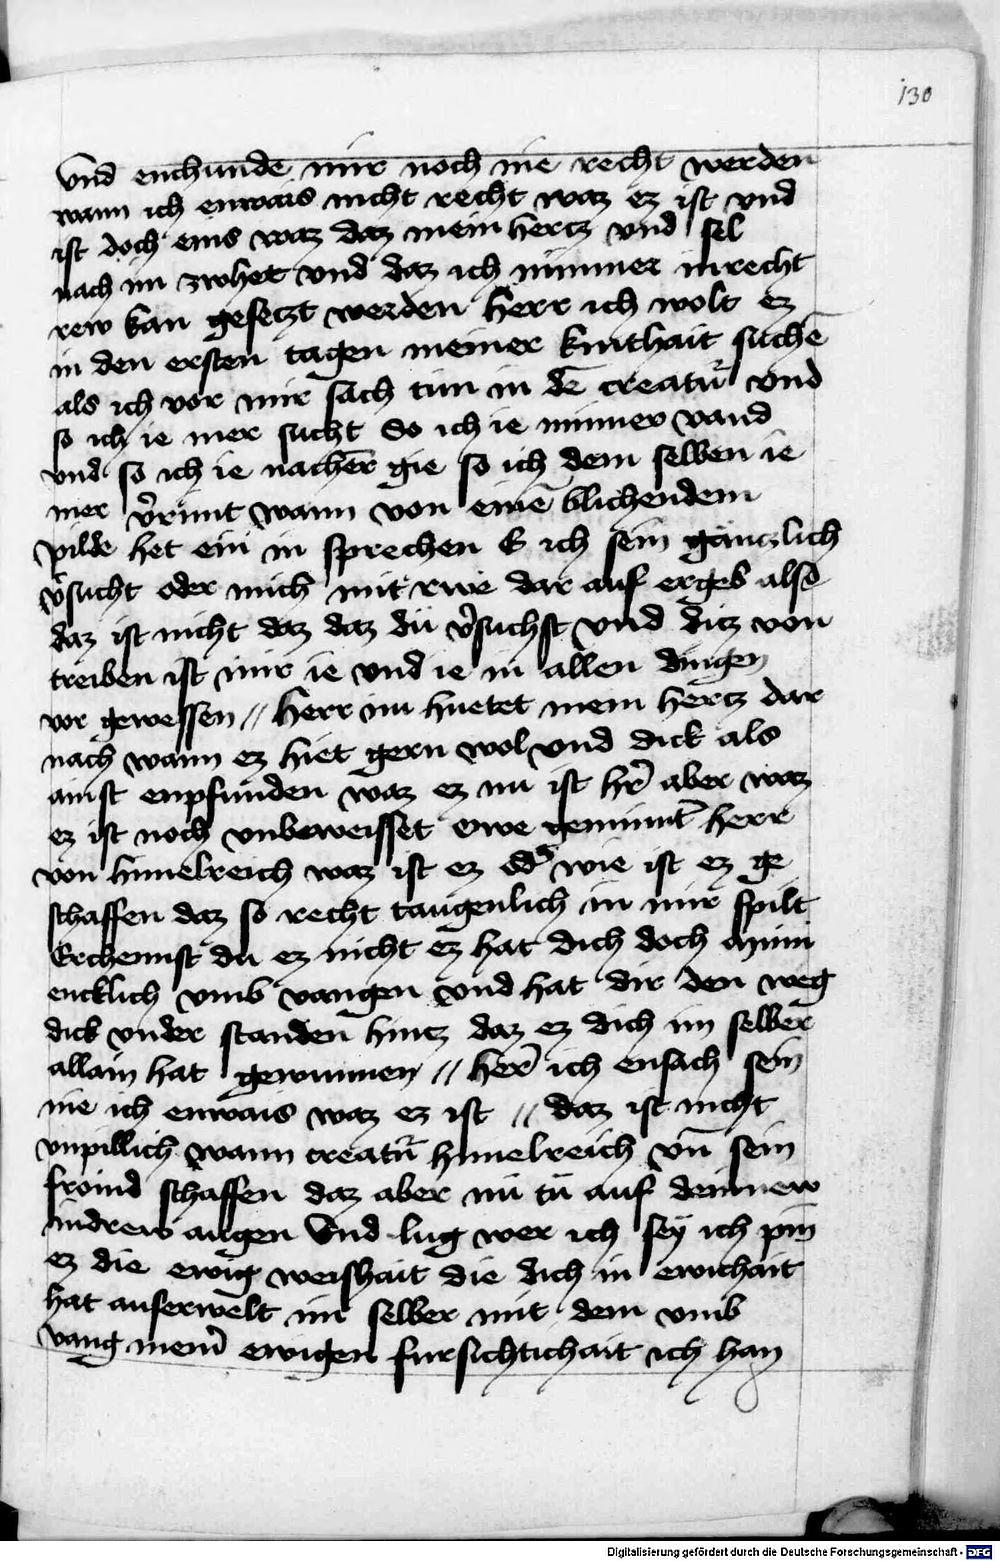 130
vnd enchunde mir noch nie recht werden
wann ich enwais nicht recht waz ez ist vnd
ist doch eins waz daz mein hercz vnd sel
nach im zwhet vnd daz ich nimmer in recht
rew kan geseczt werden herr ich wolt ez
in den ersten tagen meiner kinthait suchē
als ich vor mir sach tun in dē creatur̄ vnd
so ich ie mer sucht So ich ie minner vand
vnd so ich ie nacher gie so ich dem selben ie
mer v̓rint wann von einē blichendem
pilde het ein in sprechen E ich sein gänczlich
v̓sucht oder mich mit rwe dar auf ergeb also
daz ist nicht daz daz dü v̓suchst vnd dicz von
treiben ist mir ie vnd ie in allen dingen
vor gewessen // herr nu huetet mein hercz dar
nach wann ez hiet gern wol vnd dick als
ainst enpfunden waz ez nu ist hr̄ aber waz
ez ist noch vnbeweisset Owe geminnt̄ herr
von himelreich waz ist ez od̓ wie ist ez ge
schaffen daz so recht taugenlich in mir spilt
Erchennst du ez nicht ez hat dich doch minn
encklich vmb vangen vnd hat dir den weg
dick vnder standen hincz daz ez dich im selber
allain hat gewunnen // her̄ ich ensach sein
nie ich enwais waz ez ist // daz ist nicht
vnpillich wann creatur̄ himelreich vn̄ sein
froind schaffen daz aber nu tü auf deinnew
indrew augen Vnd lug wer ich sey ich pin
ez die ewig weishait die dich in ewichait
hat auserwelt im selber mit dem vmb
vang mein̓ ewigen fursichtichait ich han
Digitalisierung gefördert durch die Deutsche Forschungsgemeinschaft - DFG